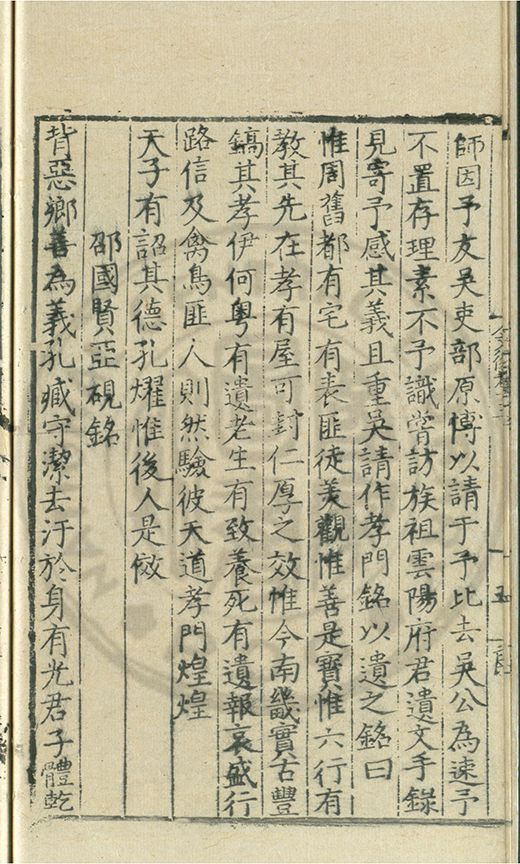 師因予友吳吏部原博以請于予比去吳公為速予
不置存理素不予識嘗訪族祖雲陽府君遺文手錄
見寄予感其義且重吳請作孝門銘以遺之銘曰
惟周舊都有宅有表匪徒美觀惟善是寶惟六行有
教其先在孝有屋可封仁厚之效惟今南畿實古豐
鎬其孝伊何粵有遺老生有致養死有遺報哀盛行
路信及禽鳥匪人則然驗彼天道孝門煌煌
天子有詔其德孔燿惟後人是傚
邵國賢亞硯銘
背惡鄉善為義孔臧守潔去汙於身有光君子體乾